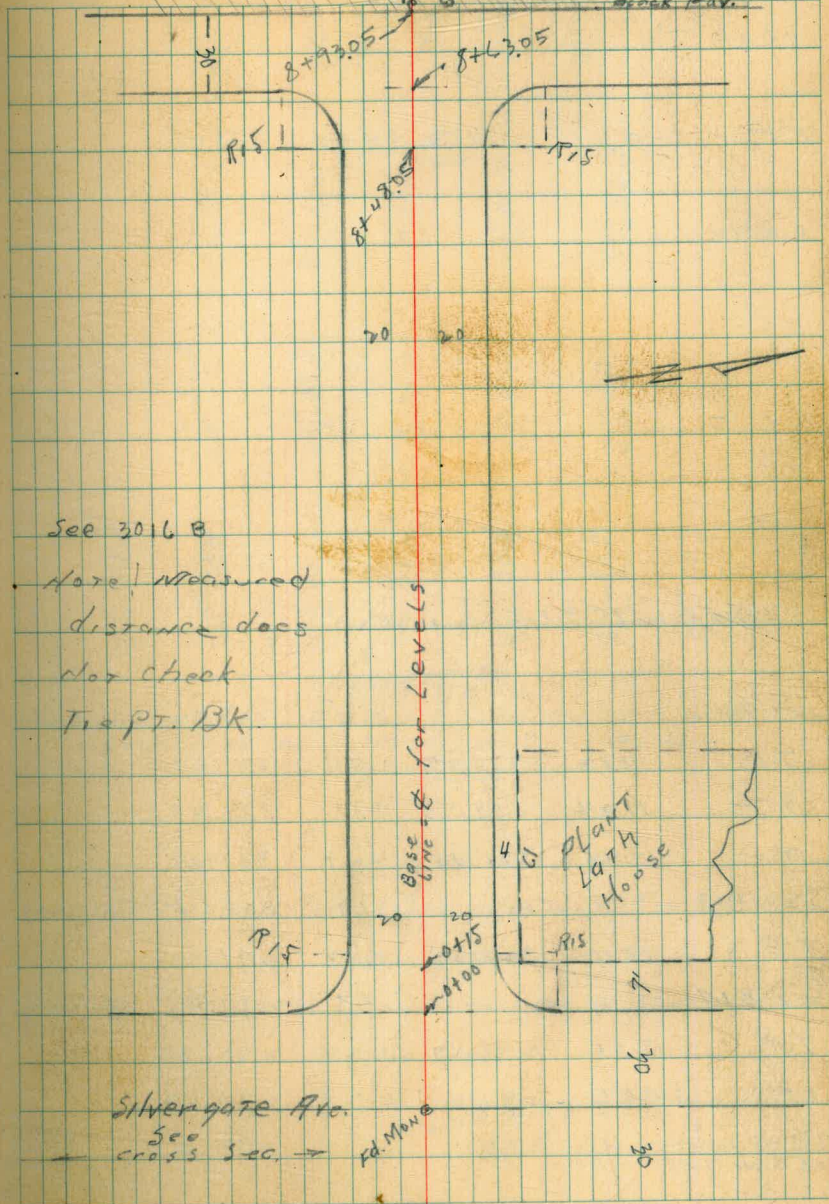 30
8+93.05
8+63.05
R15
R15
8+48.05
20 20
See 3016 B
Note! Measured
distance does
Not Check
Tie PT. BK.
Base
Line
for Levels
4
PLANT
LATH
HOUSE
20 20
R15
0+15
R15
0+00
30
Silvergate Ave.
See
cross Sec.
Fd. Mon
30